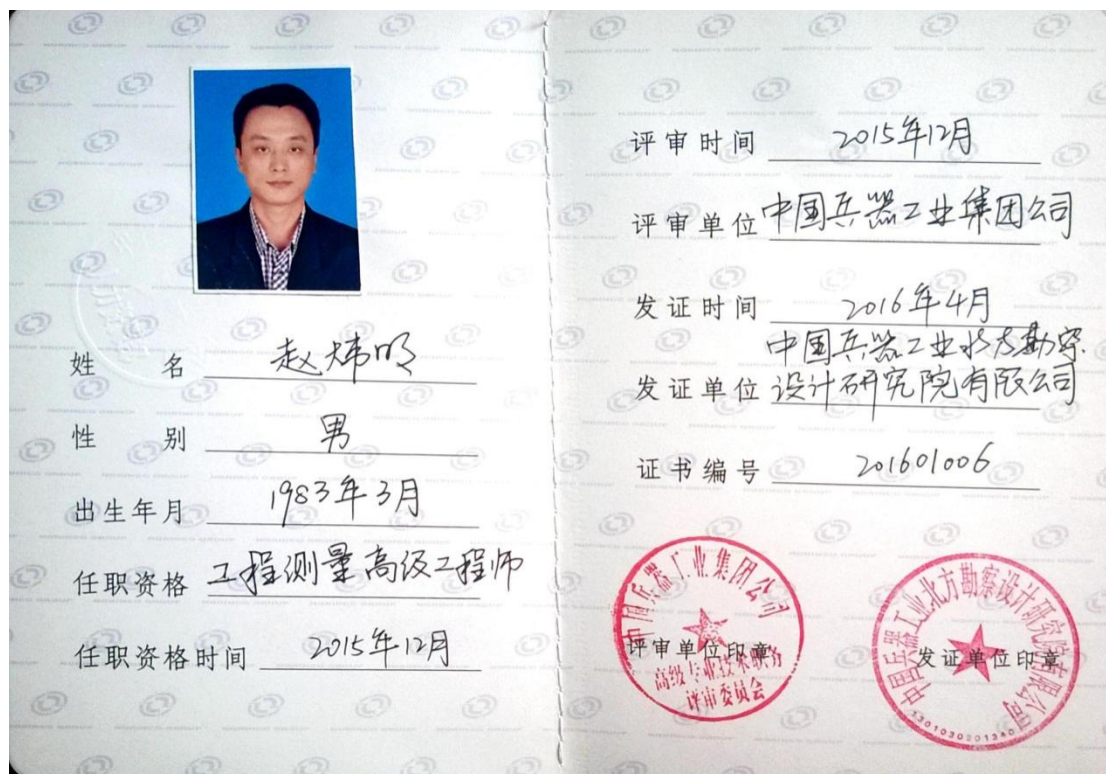 姓 名 赵炜明
性 别 男
出生年月 1983年3月
任职资格 工程测量高级工程师
任职资格时间 2015年12月
评审时间 2015年12月
评审单位 中国兵器工业集团公司
发证时间 2016年4月
中国兵器工业北方勘察
发证单位 设计研究院有限公司
证书编号 201601006
中国兵器工业集团公司
评审单位印章
高级专业技术职务
评审委员会
中国兵器工业北方勘察设计研究院有限公司
发证单位印章